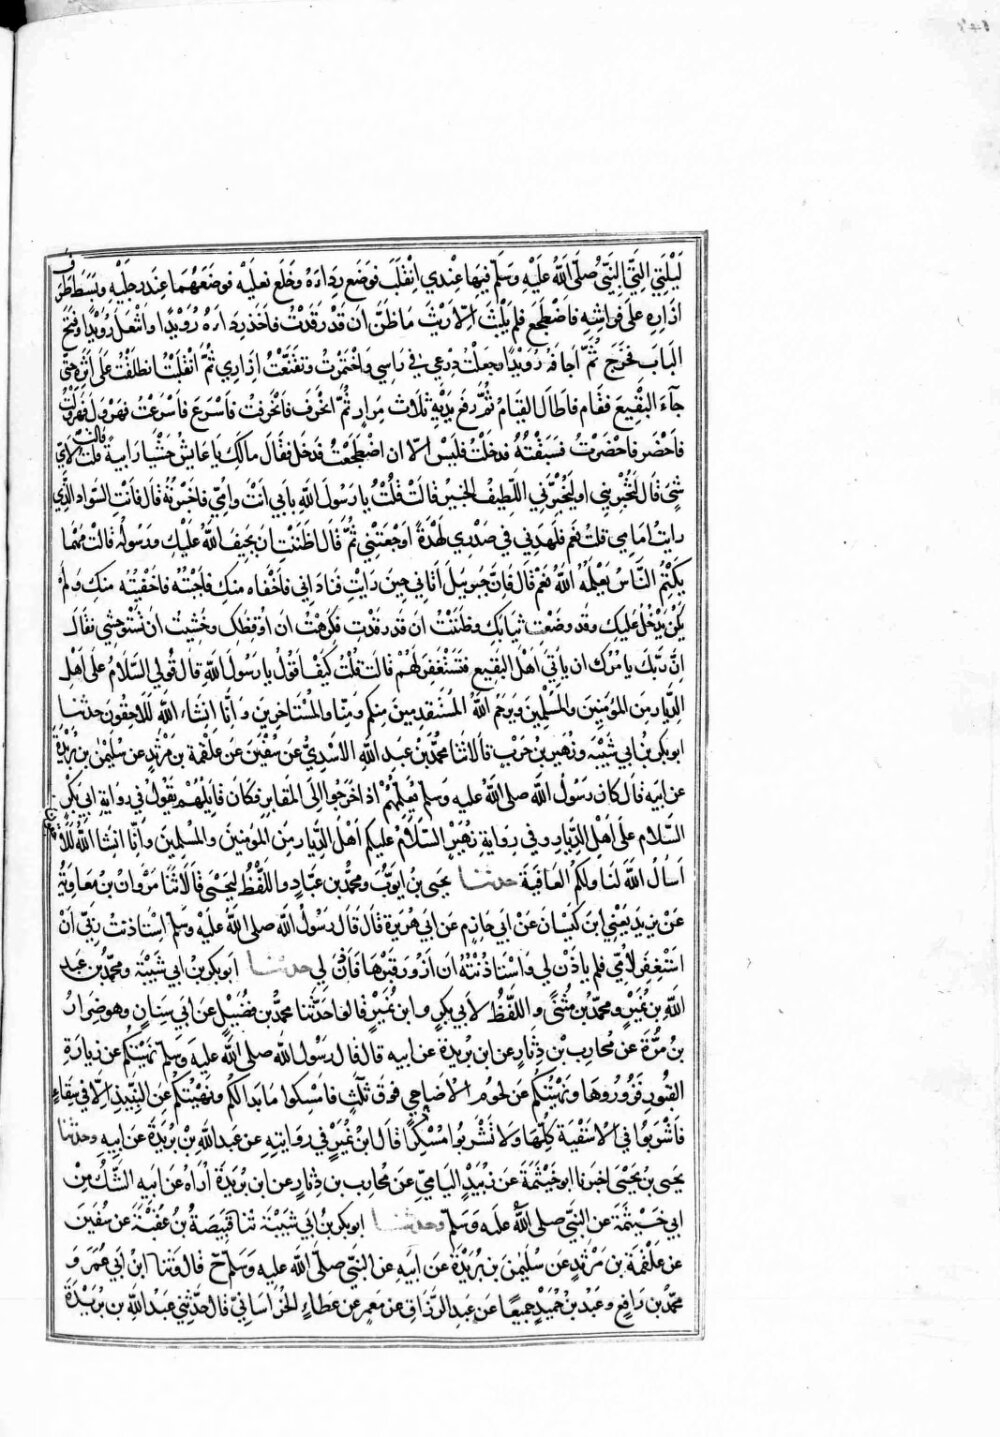 لَيْلَتِي الَّتِي النَّبِيُّ صَلَّى اللهُ عَلَيْهِ وَسَلَّمَ فِيهَا عِنْدِي انْقَلَبَ فَوَضَعَ رِدَاءَهُ وَخَلَعَ نَعلَيْهِ فَوَضَعَهُمَا عِندَ رِجلَيْهِ وَبَسَطَ طَرَفَ
اِزَارِه عَلَى فِرَاشِهِ فَاضْطَجَعَ فَلَم يَلْبَثْ اِلَّا رَيْثَ مَا ظَنَّ اَن قَدْ رَقَدْتُ فَاَخَذَ رِدَاءَهُ رُوَيْدًا وَانْتَعَلَ رُوَيْدًا وَفَتَحَ
الْبَابَ فَخَرَجَ ثُمَّ اَجَافَهُ رُوَيْدًا فجَعَلْتُ دِرْعِي فِي رَاسِي وَاخْتَمَرْتُ وَتَقَنَّعْتُ اِزَارِي ثُمَّ انْقَلَبْتُ انطَلَقْتُ عَلَى اَثَرِهِ حَتَّى
جَآءَ الْبَقِيعَ فَقَام فَاَطَالَ القِيَامَ ثُمَّ رَفَع يَدَيْهِ ثَلَاثَ مِرَارٍ ثُمَّ انْحَرَفَ فَانْحَرَفْتُ فَاَسْرَعَ فَاَسْرَعْتُ فَهَرْوَلَ فَهَرْوَلْتُ
فَاَحْضَر فَاحْضَرْتُ فَسَبَقْتُهُ فَدَخَلْتُ فَلَيْسَ اِلَّا ان اضْطَجَعْتُ فَدَخَل فَقَال مَالَكِ يَا عَايِشُ حَشْيَا رَابِيَةً قَالَتْ قلت لِاَيِّ
شَيْءٍ قَالَ لَتُخْبِرِينِي اَو لَيُخْبِرَنِّي اللَّطِيفُ الْخَبِيْر قَالَتْ قُلْتُ يَا رَسُولَ اللهِ بِاَبِي اَنْتَ وَاُمِّي فَاَخْبَرْتُهُ قَالَ فَاَنْتِ السَّوَادُ الَّذِي
رَاَيْتُ اَمَامِي قُلتُ نَعَم فَلَهَدَنِي فِي صَدْرِي لَهْدَةً اَوْجَعَتْنِي ثُمَّ قَالَ اَظَنَنْتِ ان يَحِيفَ اللهُ عَلَيْكِ وَرَسُولُه قَالَتْ مَهْمَا
يَكْتُمِ النَّاسُ يَعْلَمْهُ اللهُ نَعَمْ قَالَ فَاِنَّ جَبرَيِيلَ اَتَانِي حِينَ رَاَيْتِ فَنَادَانِي فَاَخْفَاه مِنكِ فَاَجَبْتُهُ فَاَخْفَيْتُه مِنكِ وَلَمْ
يَكُنْ يَدْخُلُ عَلَيكِ وقَد وَضَعْتِ ثِيَابَكِ وَظَنَنْتُ اَن قَد رَقَدْتِ فَكَرِهْتُ ان اُوقِظَكِ وَخَشِيتُ اَن تَسْتَوْحِشِي فقَالَ
اِنَّ رَبَّكَ يَامُرُكَ ان يَاتِيَ اَهْلَ البَقِيع فَتَسْتَغْفِرَ لَهُمْ قَالَتْ قُلْتُ كَيْفَ اَقُوْلُ يَا رَسُولَ اللهِ قَالَ قُولِي السَّلَامُ عَلَى اَهْلِ
الدِّيَارِ مِنَ المُؤمِنِيْنَ والْمُسْلِمِينَ وَيَرحَمُ اللهُ المُسْتَقدِمِينَ مِنكُم وَمِنَّا وَالْمُسْتَاخِرِينَ وَاِنَّا اِنشَاءَ اللهُ لَلَاحِقُونَ حدثنا
ابو بكر بنُ ابي شَيْبَةَ وَزُهَيرُ بنُ حَربٍ قَالَا ثنا محمَّدُ بنُ عَبدِ اللهِ الاسَدِيُّ عَن سُفْيٰنَ عَن عَلقَمة بن مَرْثَدٍ عن سُلَيْمٰنَ بن بُرَيْدَةَ
عَن اَبِيهِ قَالَ كَانَ رَسُوْلُ اللهِ صلى اللهُ عليه وسَلم يُعَلِّمُهُمْ اِذَا خَرَجُوا اِلَى المَقَابِرِ فَكَان قَايِلُهُم يَقُوْلُ فِي رِوَايَةِ اَبِي بَكْرٍ
السَّلَام عَلَى اَهْلِ الدِّيَارِ وَفِي رِوَايَةِ زُهَيْرٍ السَّلَامُ عَلَيكم اَهْلَ الدِّيَارِ مِنَ المؤمنينَ والمسْلِمِينَ وَاِنَّا انشَا اللهُ لَلَاحِقُونَ
اَسْاَلُ اللهَ لَنَا ولكُم العَافِيَةَ حدثنا يحيى بنُ ايوبَ ومحمدُ بن عَبَّادٍ واللَّفْظُ لِيَحْيَى قَالَا ثنا مَرْوَانُ بنُ مُعَاوِيَةَ
عَن يَزِيدَ يَعْنِي ابنَ كَيْسَانَ عَن اَبي حَازِمٍ عن ابي هُرَيرةَ قَالَ قَالَ رَسُوْلُ الله صلى اللهُ عَلَيْهِ وَسَلَّمَ اسْتَاذَنتُ رَبِّي اَنْ
اَسْتَغْفِرَ لِاُمِّي فَلم يَاذَنْ لِي وَاسْتَاذَنْتُهُ اَن اَزُورَ قَبْرَهَا فَاَذِنَ لِي حدثنا ابو بكر بنُ ابي شَيبَة ومحمَّدُ بنُ عَبدِ
اللهِ بن نُمَيْرٍ ومحمّدُ بنُ مُثَنًّى واللَّفْظُ لِابي بكرٍ وابن نُمَيْرٍ قَالوا حَدَّثَنا محمَّدُ بنُ فُضَيْلٍ عَن اَبي سِنَانٍ وهو ضِرَارُ
بنُ مُرَّةَ عَن مُحَارِبِ بنِ دِثَارٍ عن ابنِ بُرَيْدَةَ عَن ابيه قَالَ قَالَ رَسُوْلُ اللهِ صلى اللهُ عليه وَسَلم نَهَيْتُكُم عَن زِيَارَةِ
القُبُورِ فَزُورُوهَا وَنَهَيْتُكُم عَن لحُومِ الاَضَاحِي فَوقَ ثَلٰثٍ فَاَمْسِكُوا مَا بَدَا لَكُم ونَهَيْتُكُم عَنِ النَّبِيْذِ اِلَّا فِي سِقَاءٍ
فَاشْرَبُوا فِي الاَسْقِيَةِ كُلِّهَا وَلَا تَشْرَبُوا مُسْكِرًا قَالَ ابنُ نُمَيْرٍ فِي رِوَايَتِهِ عن عَبدِ اللهِ بْنِ بُرَيْدَةَ عَن ابيه وحدثنا
يَحيَى بنُ يَحْيَى اخبرنا ابو خَيْثَمَةَ عَن زُبَيْدٍ اليَامِيِّ عَن مُحَارِب بن دِثَارٍ عن ابنِ بُرَيْدَةَ اُرَاهُ عَن اَبيه الشَّكُّ مِنْ
ابي خَيْثَمَةَ عَنِ النَّبِيِّ صلى اللهُ عليه وَسَلم وحدثنا ابو بكر بنُ ابي شَيْبَةَ ثنا قَبِيصَةُ بنُ عُقْبَةَ عن سُفيٰنَ
عن عَلْقَمَةَ بن مَرْثَدٍ عن سُلَيْمٰنَ بنِ بُرَيْدَةَ عَن اَبِيهِ عَن النَّبِيِّ صَلَّى الله عليه وَسَلَّم ح قَالَ وَثَنا ابنُ اَبي عُمَرَ وَ
محمّدُ بن رَافِعٍ وعَبْدُ بنُ حُمَيْدٍ جَمِيعًا عَن عَبدِ الرَّزَّاق عن مَعْمَرٍ عن عَطَاءٍ الخُرَاسَانِيِّ قَالَ حَدَّثَنِي عَبْدُ اللهِ بن بُرَيْدَةَ